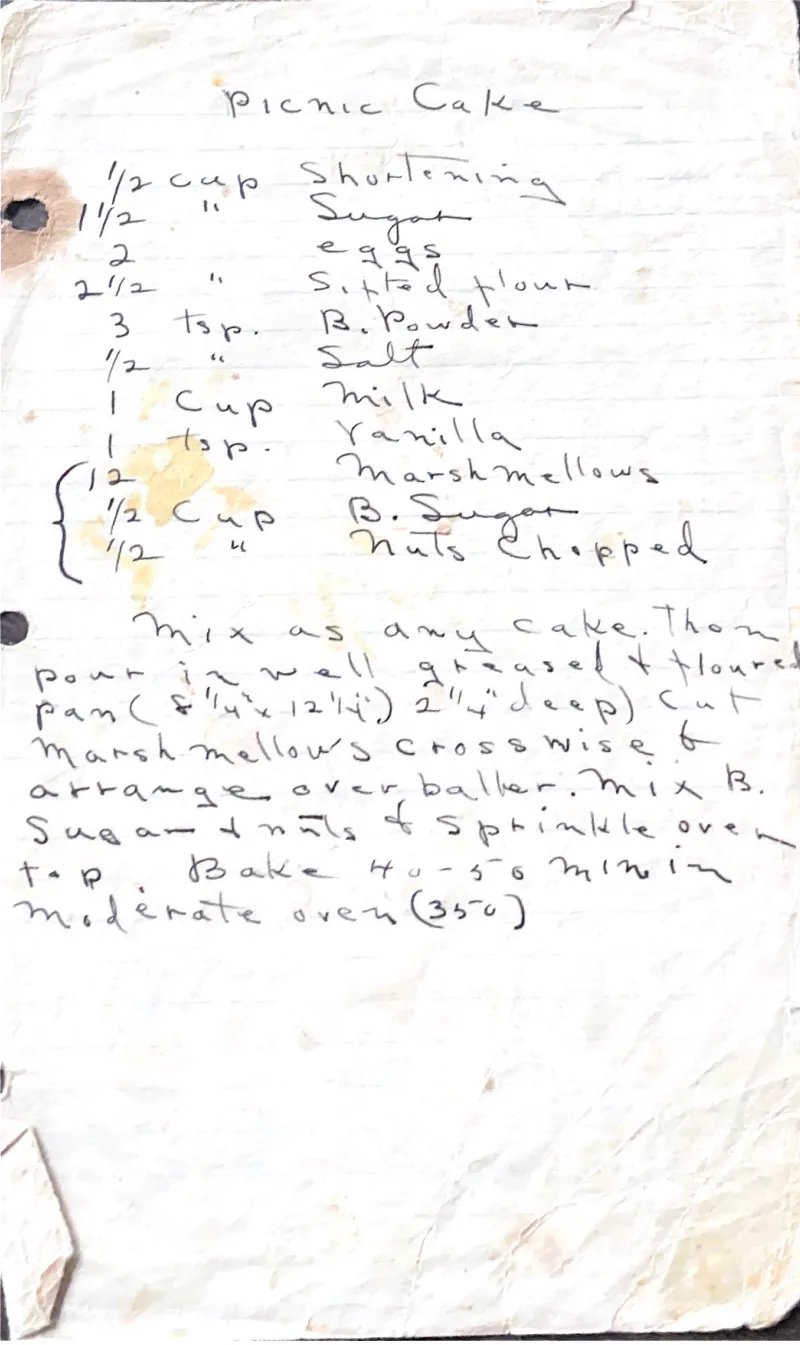 Picnic Cake
1/2 cup Shortening
1 1/2 " Sugar
2 eggs
2 1/2 " Sifted flour
3 tsp. B. Powder
1/2 " Salt
1 Cup Milk
1 tsp. Vanilla
12 Marshmellows
1/2 Cup B. Sugar
1/2 " Nuts Chopped
Mix as any cake. Then
pour in well greased & floured
pan (8 1/4" x 12 1/4") 2 1/4" deep) Cut
Marshmellows crosswise &
arrange over batter. Mix B.
Sugar & nuts & Sprinkle over
top. Bake 40-50 min in
Moderate oven (350)